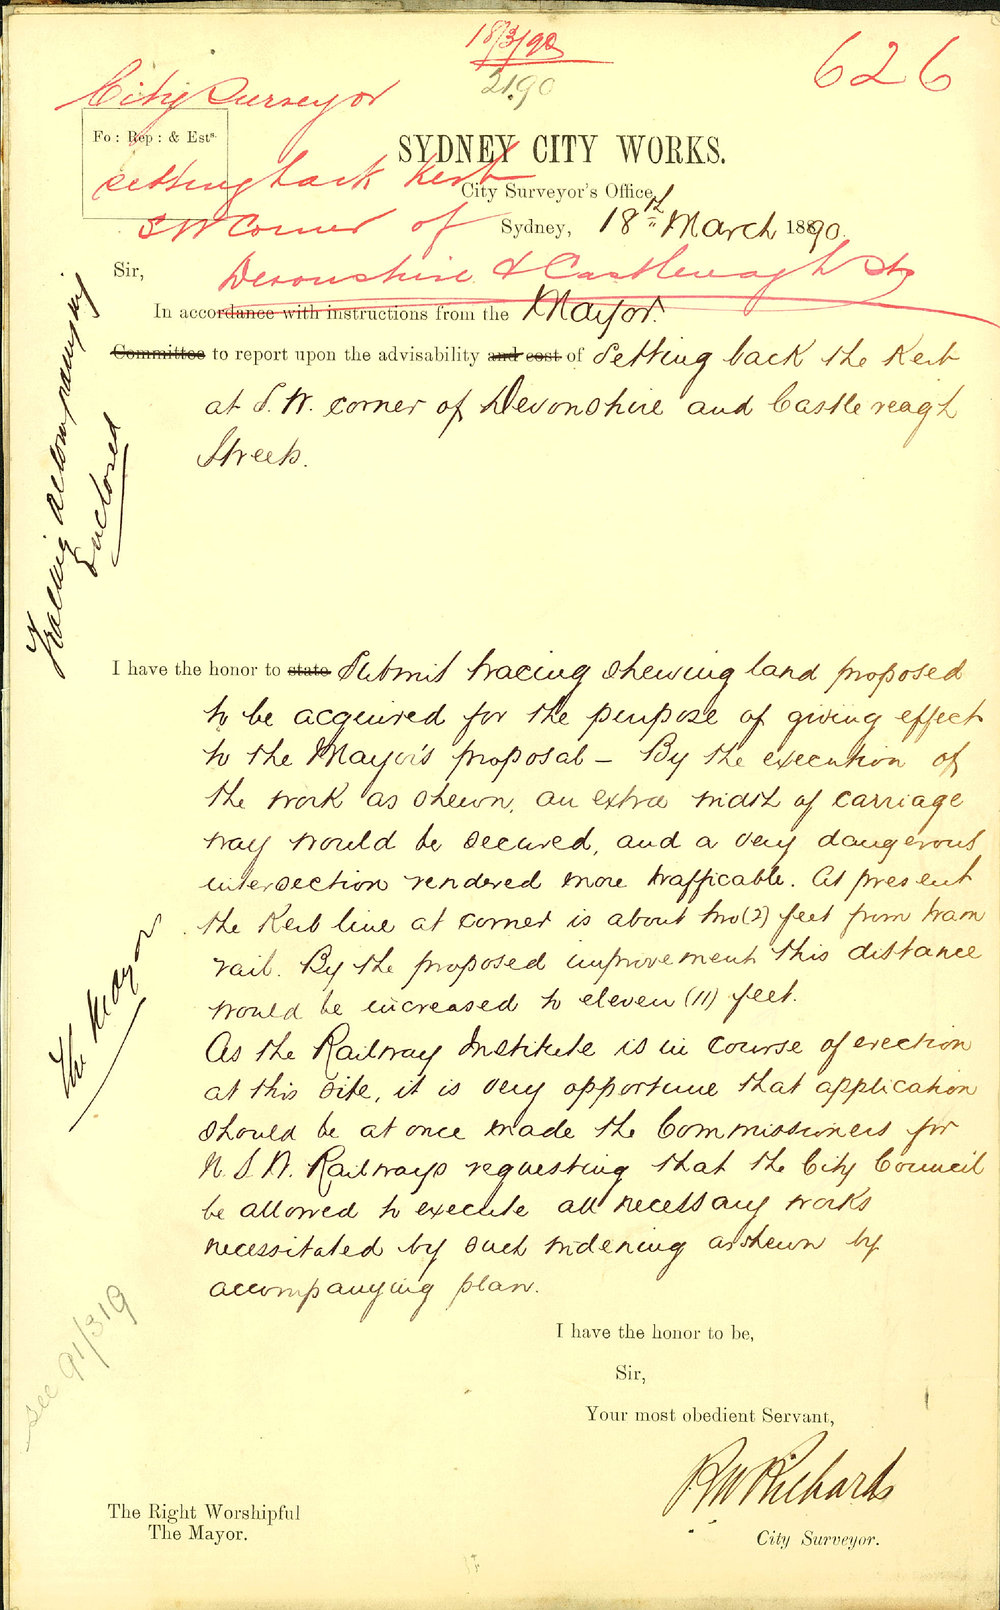 18/3/90
2190
626
City Surveyor
Fo: Rep: & Ests.
SYDNEY CITY WORKS.
setting back Kerb
City Surveyor's Office,
S W Corner of
Sydney, 18th March 1890.
Sir,
Devonshire & Castlereagh Sts
In accordance with instructions from the Mayor.
Committee to report upon the advisability and cost of Setting back the Kerb
at S. W. corner of Devonshire and Castlereagh
Streets.
Tracing accompanying
Enclosed
I have the honor to state Submit tracing shewing land proposed
to be acquired for the purpose of giving effect
to the Mayor's proposal – By the execution of
the work as shewn, an extra width of carriage
way would be secured, and a very dangerous
intersection rendered more trafficable. At present
the Kerb line at corner is about two (2) feet from tram
rail. By the proposed improvement this distance
would be increased to eleven (11) feet.
The Mayor
As the Railway Institute is in course of erection
at this site, it is very opportune that application
should be at once made the Commissioners for
N. S. W. Railways requesting that the City Council
be allowed to execute all necessary works
necessitated by such widening as shewn by
accompanying plan.
see 91/319
I have the honor to be,
Sir,
Your most obedient Servant,
R W Richards
City Surveyor.
The Right Worshipful
The Mayor.